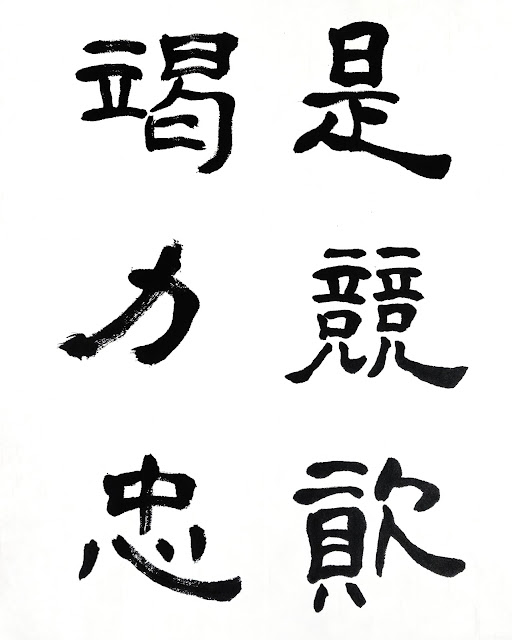 是競資
竭力忠